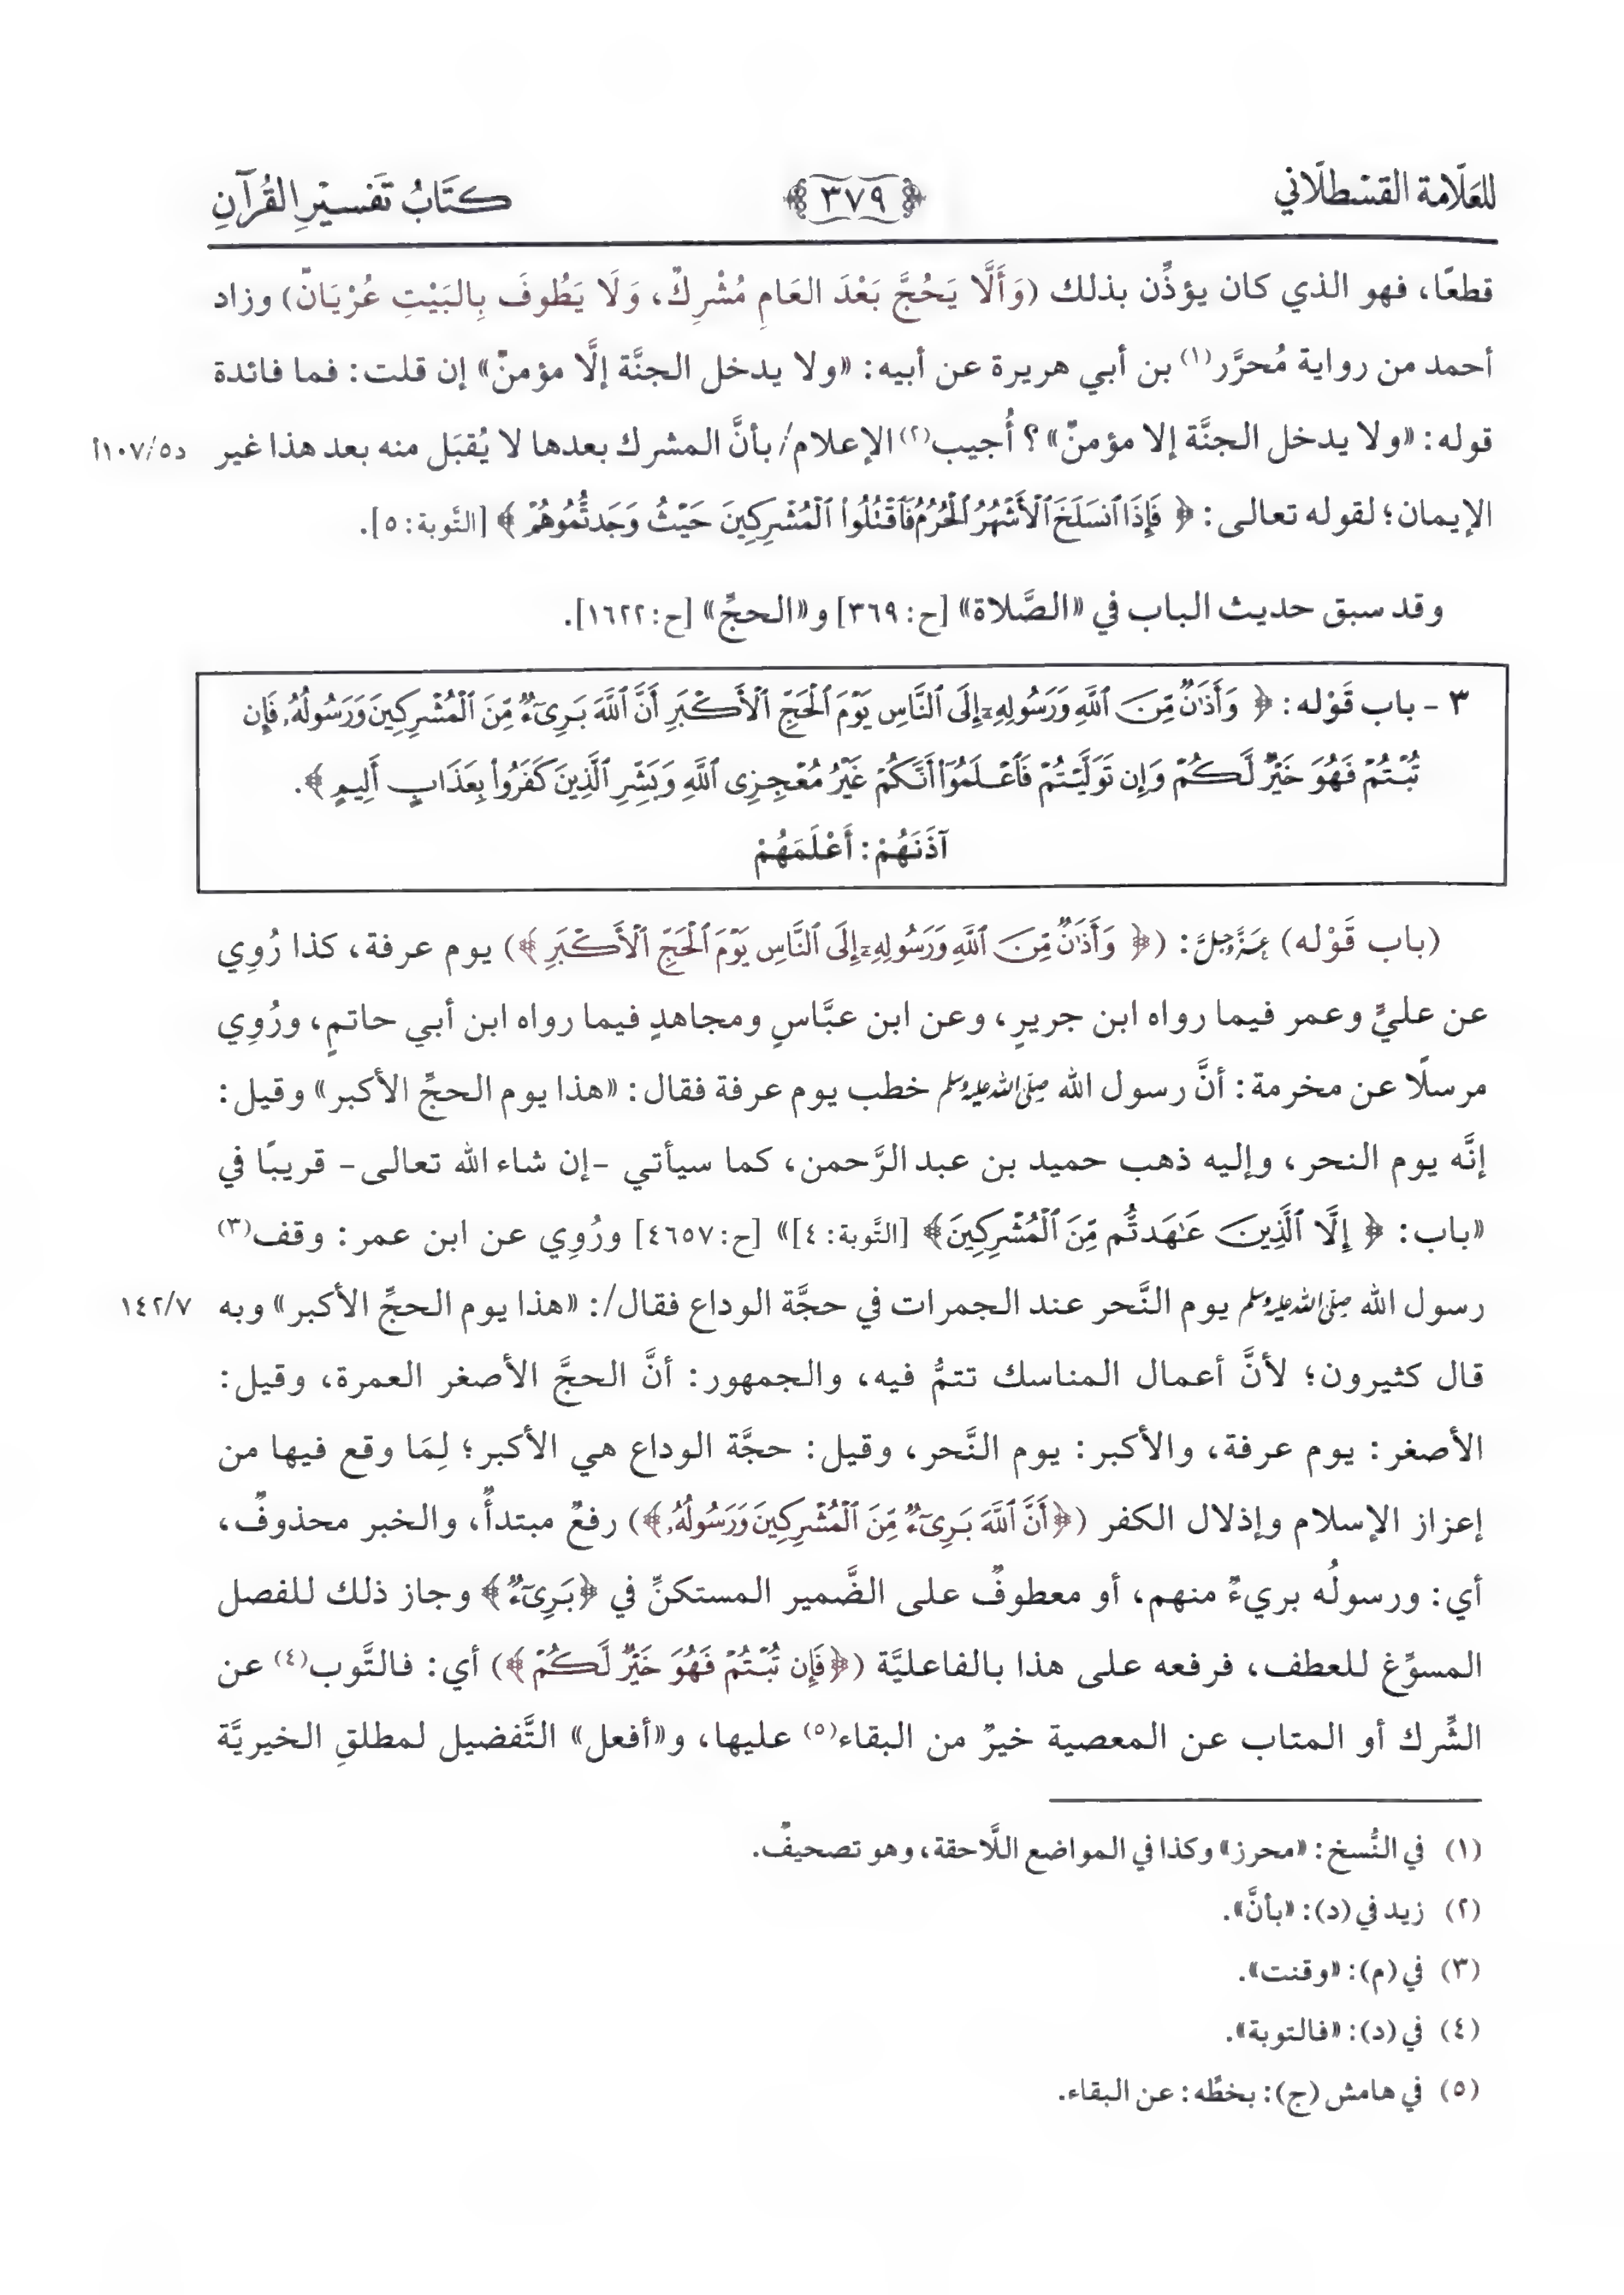 للعَلّامة القسْطلّاني
﴿٣٧٩﴾
كتَابُ تَفسيْرِ القُرآنِ
قطعًا، فهو الذي كان يؤذِّن بذلك (وَأَلَّا يَحُجَّ بَعْدَ العَامِ مُشْرِكٌ، وَلَا يَطُوفَ بِالبَيْتِ عُرْيَانٌ) وزاد
أحمد من رواية مُحرَّر(١) بن أبي هريرة عن أبيه: «ولا يدخل الجنَّة إلَّا مؤمنٌ» إن قلت: فما فائدة
قوله: «ولا يدخل الجنَّة إلا مؤمنٌ»؟ أُجيب(٢) الإعلام/ بأنَّ المشرك بعدها لا يُقبَل منه بعد هذا غير
د٥/١٠٧أ
الإيمان؛ لقوله تعالى: ﴿فَإِذَا ٱنسَلَخَ ٱلْأَشْهُرُ ٱلْحُرُمُ فَٱقْتُلُوا۟ ٱلْمُشْرِكِينَ حَيْثُ وَجَدتُّمُوهُمْ﴾ [التَّوبة: ٥].
وقد سبق حديث الباب في «الصَّلاة» [ح: ٣٦٩] و«الحجِّ» [ح: ١٦٢٢].
٣ - باب قَوْله: ﴿وَأَذَٰنٌ مِّنَ ٱللَّهِ وَرَسُولِهِۦٓ إِلَى ٱلنَّاسِ يَوْمَ ٱلْحَجِّ ٱلْأَكْبَرِ أَنَّ ٱللَّهَ بَرِىٓءٌ مِّنَ ٱلْمُشْرِكِينَ وَرَسُولُهُۥ فَإِن
تُبْتُمْ فَهُوَ خَيْرٌ لَّكُمْ وَإِن تَوَلَّيْتُمْ فَٱعْلَمُوٓا۟ أَنَّكُمْ غَيْرُ مُعْجِزِى ٱللَّهِ وَبَشِّرِ ٱلَّذِينَ كَفَرُوا۟ بِعَذَابٍ أَلِيمٍ﴾.
آذَنَهُمْ: أَعْلَمَهُمْ
(باب قَوْله) عَزَّوَجَلَّ: (﴿وَأَذَٰنٌ مِّنَ ٱللَّهِ وَرَسُولِهِۦٓ إِلَى ٱلنَّاسِ يَوْمَ ٱلْحَجِّ ٱلْأَكْبَرِ﴾) يوم عرفة، كذا رُوِي
عن عليٍّ وعمر فيما رواه ابن جريرٍ، وعن ابن عبَّاسٍ ومجاهدٍ فيما رواه ابن أبي حاتمٍ، ورُوِي
مرسلًا عن مخرمة: أنَّ رسول الله صلى الله عليه وسلم خطب يوم عرفة فقال: «هذا يوم الحجِّ الأكبر» وقيل:
إنَّه يوم النحر، وإليه ذهب حميد بن عبد الرَّحمن، كما سيأتي -إن شاء الله تعالى- قريبًا في
«باب: ﴿إِلَّا ٱلَّذِينَ عَٰهَدتُّم مِّنَ ٱلْمُشْرِكِينَ﴾ [التَّوبة: ٤]» [ح: ٤٦٥٧] ورُوِي عن ابن عمر: وقف(٣)
رسول الله صلى الله عليه وسلم يوم النَّحر عند الجمرات في حجَّة الوداع فقال/: «هذا يوم الحجِّ الأكبر» وبه
١٤٢/٧
قال كثيرون؛ لأنَّ أعمال المناسك تتمُّ فيه، والجمهور: أنَّ الحجَّ الأصغر العمرة، وقيل:
الأصغر: يوم عرفة، والأكبر: يوم النَّحر، وقيل: حجَّة الوداع هي الأكبر؛ لِمَا وقع فيها من
إعزاز الإسلام وإذلال الكفر (﴿أَنَّ ٱللَّهَ بَرِىٓءٌ مِّنَ ٱلْمُشْرِكِينَ وَرَسُولُهُۥ﴾) رفعٌ مبتدأٌ، والخبر محذوفٌ،
أي: ورسولُه بريءٌ منهم، أو معطوفٌ على الضَّمير المستكنِّ في ﴿بَرِىٓءٌ﴾ وجاز ذلك للفصل
المسوِّغ للعطف، فرفعه على هذا بالفاعليَّة (﴿فَإِن تُبْتُمْ فَهُوَ خَيْرٌ لَّكُمْ﴾) أي: فالتَّوب(٤) عن
الشِّرك أو المتاب عن المعصية خيرٌ من البقاء(٥) عليها، و«أفعل» التَّفضيل لمطلقِ الخيريَّة
(١) في النُّسخ: «محرز» وكذا في المواضع اللَّاحقة، وهو تصحيفٌ.
(٢) زيد في (د): «بأنَّ».
(٣) في (م): «وقنت».
(٤) في (د): «فالتوبة».
(٥) في هامش (ج): بخطِّه: عن البقاء.